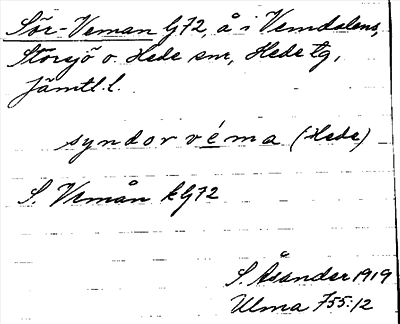 Sör-Veman G72, å i Vemdalens,
Storsjö o. Hede snr, Hede tg,
Jämtl.l.
syndor véma (Hede)
S. Vemån kG72
S. Åsander 1919
Ulma 755:12